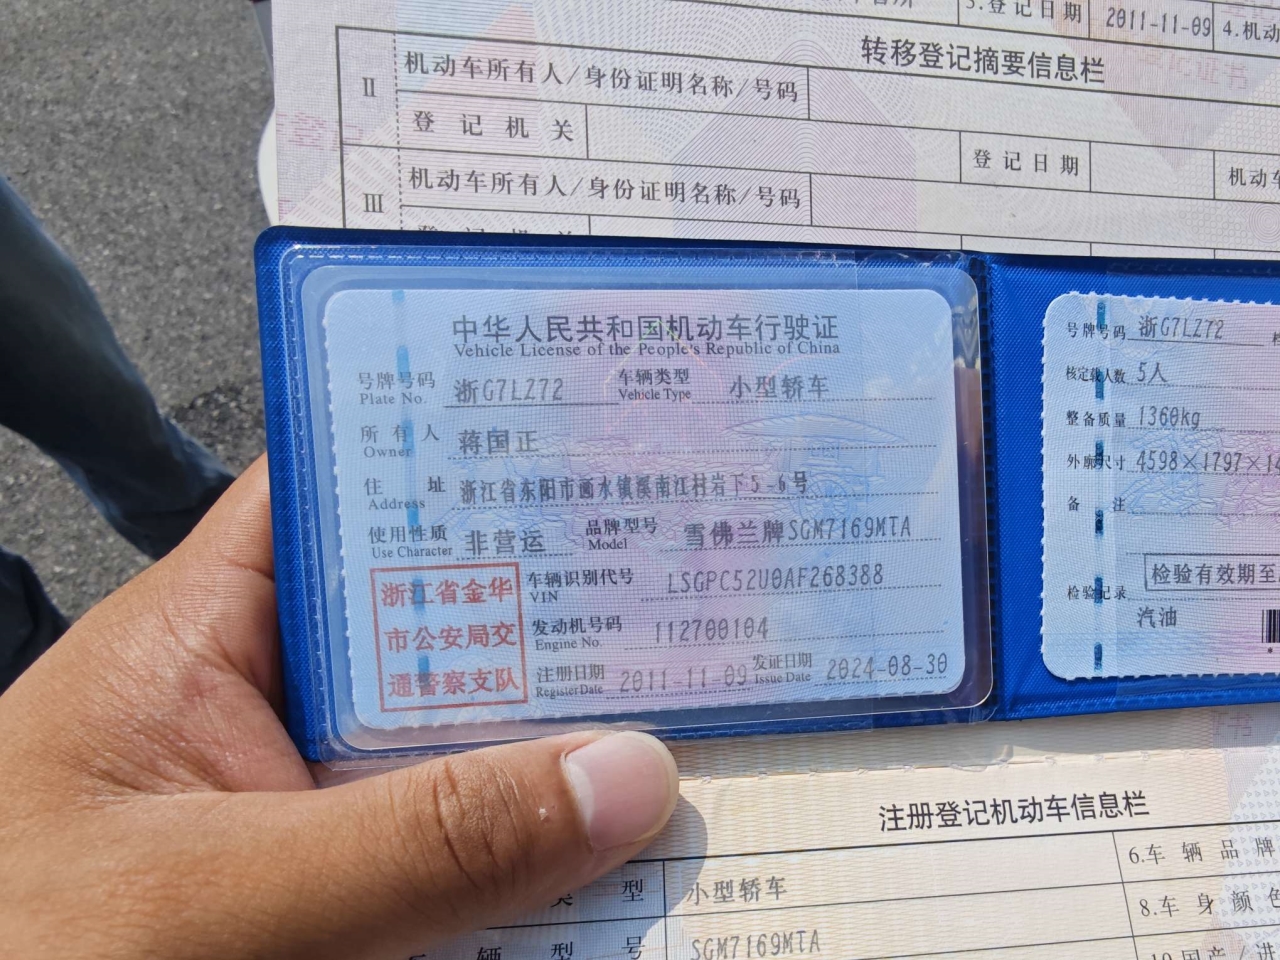 3.登记日期 2011-11-09 4.机动
转移登记摘要信息栏
II 机动车所有人/身份证明名称/号码
登记机关 登记日期 机动车
III 机动车所有人/身份证明名称/号码
中华人民共和国机动车行驶证
Vehicle License of the People's Republic of China
号牌号码 浙G7LZ72 车辆类型 小型轿车
Plate No. Vehicle Type
所有人 蒋国正
Owner
住址 浙江省东阳市画水镇溪南江村岩下5-6号
Address
使用性质 非营运 品牌型号 雪佛兰牌SGM7169MTA
Use Character Model
浙江省金华
市公安局交
通警察支队
车辆识别代号 LSGPC52U0AF268388
VIN
发动机号码 112700104
Engine No.
注册日期 2011-11-09 发证日期 2024-08-30
Register Date Issue Date
号牌号码 浙G7LZ72
核定载人数 5人
整备质量 1360kg
外廓尺寸 4598×1797×14
备注
检验有效期至
检验记录
汽油
注册登记机动车信息栏
类型 小型轿车 6.车辆品牌
辆型号 SGM7169MTA 8.车身颜色
10.国产/进